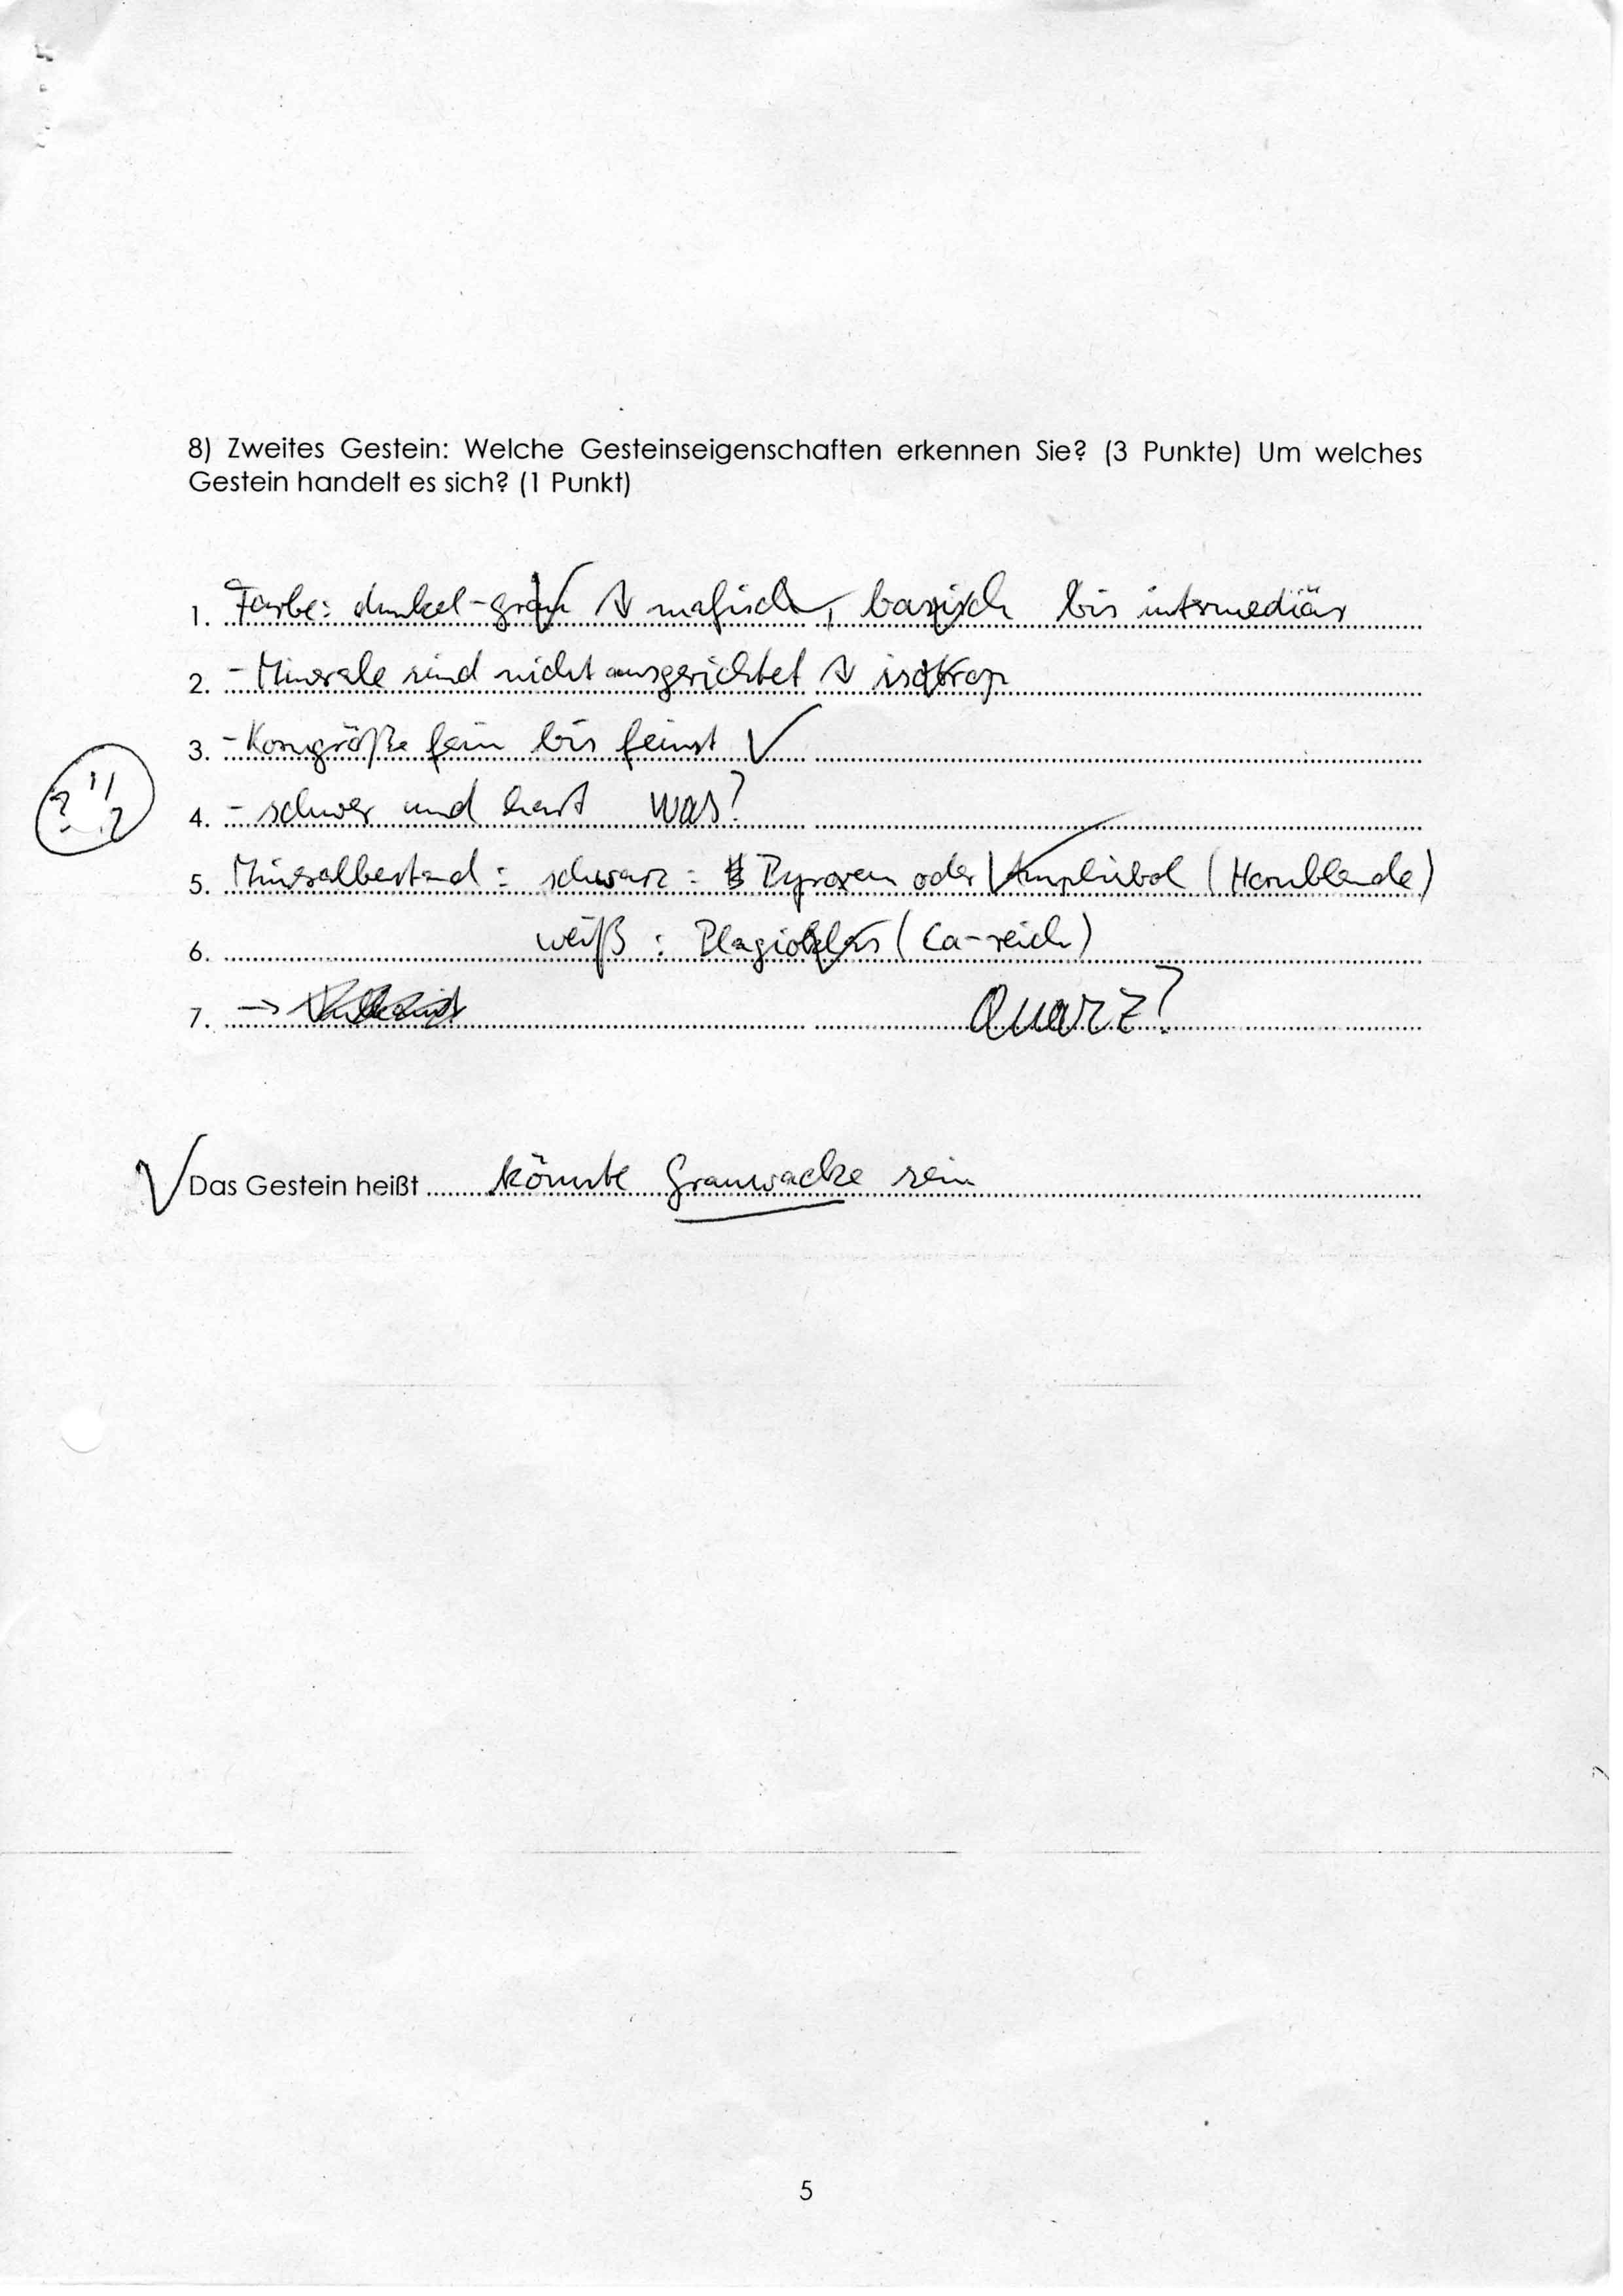 8) Zweites Gestein: Welche Gesteinseigenschaften erkennen Sie? (3 Punkte) Um welches
Gestein handelt es sich? (1 Punkt)
1. Farbe: dunkel-grau mafisch, basisch bis intermediär
2. - Minerale sind nicht ausgerichtet isotrop
3. - Korngröße fein bis feinst
4. - schwer und hart was?
5. Mineralbestand: schwarz: Pyroxen oder Amphibol (Hornblende)
6. weiß: Plagioklas (Ca-reich)
7. → Quarz?
Das Gestein heißt könnte Grauwacke sein
5